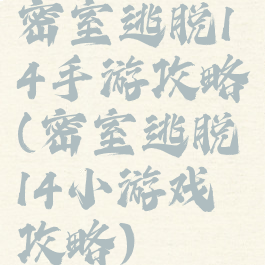 密室逃脱1
4手游攻略
(密室逃脱
14小游戏
攻略)